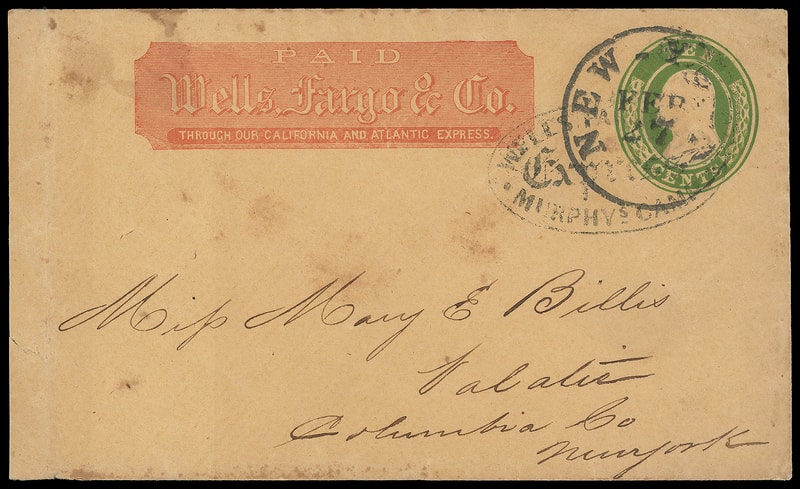 PAID
Wells, Fargo & Co.
THROUGH OUR CALIFORNIA AND ATLANTIC EXPRESS.
TEN
CENTS
NEW-Y
FEB
WELLS
Ex
MURPHYS CAMP
Miſs Mary E Billis
Valatie
Columbia Co
Newyork